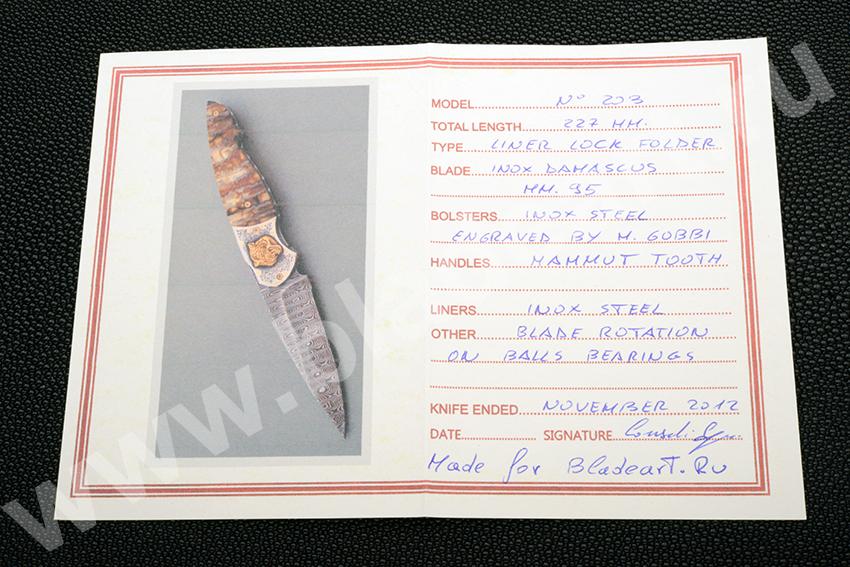 MODEL N° 203
TOTAL LENGTH 227 MM.
TYPE LINER LOCK FOLDER
BLADE INOX DAMASCUS
MM. 95
BOLSTERS INOX STEEL
ENGRAVED BY M. GOBBI
HANDLES MAMMUT TOOTH
LINERS INOX STEEL
OTHER BLADE ROTATION
ON BALLS BEARINGS
KNIFE ENDED NOVEMBER 2012
DATE SIGNATURE
Made for Bladeart.Ru